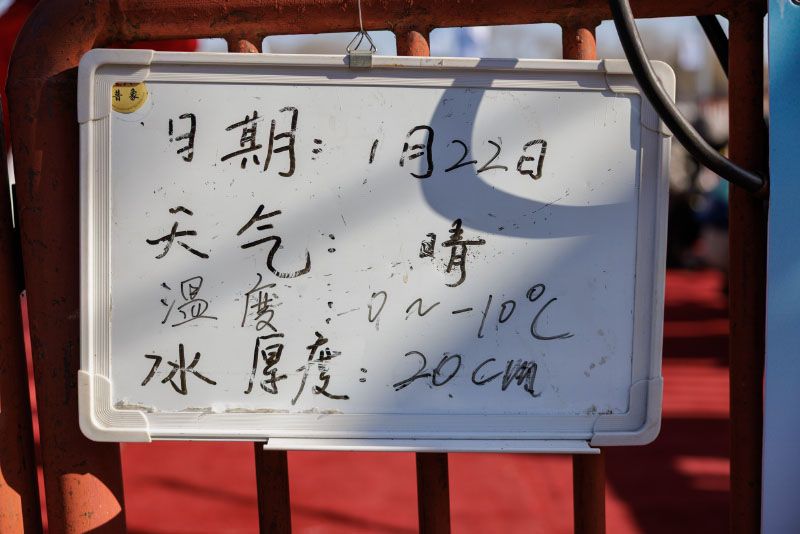 普象
日期: 1月22日
天气: 晴
温度: -0~-10℃
冰厚度: 20cm